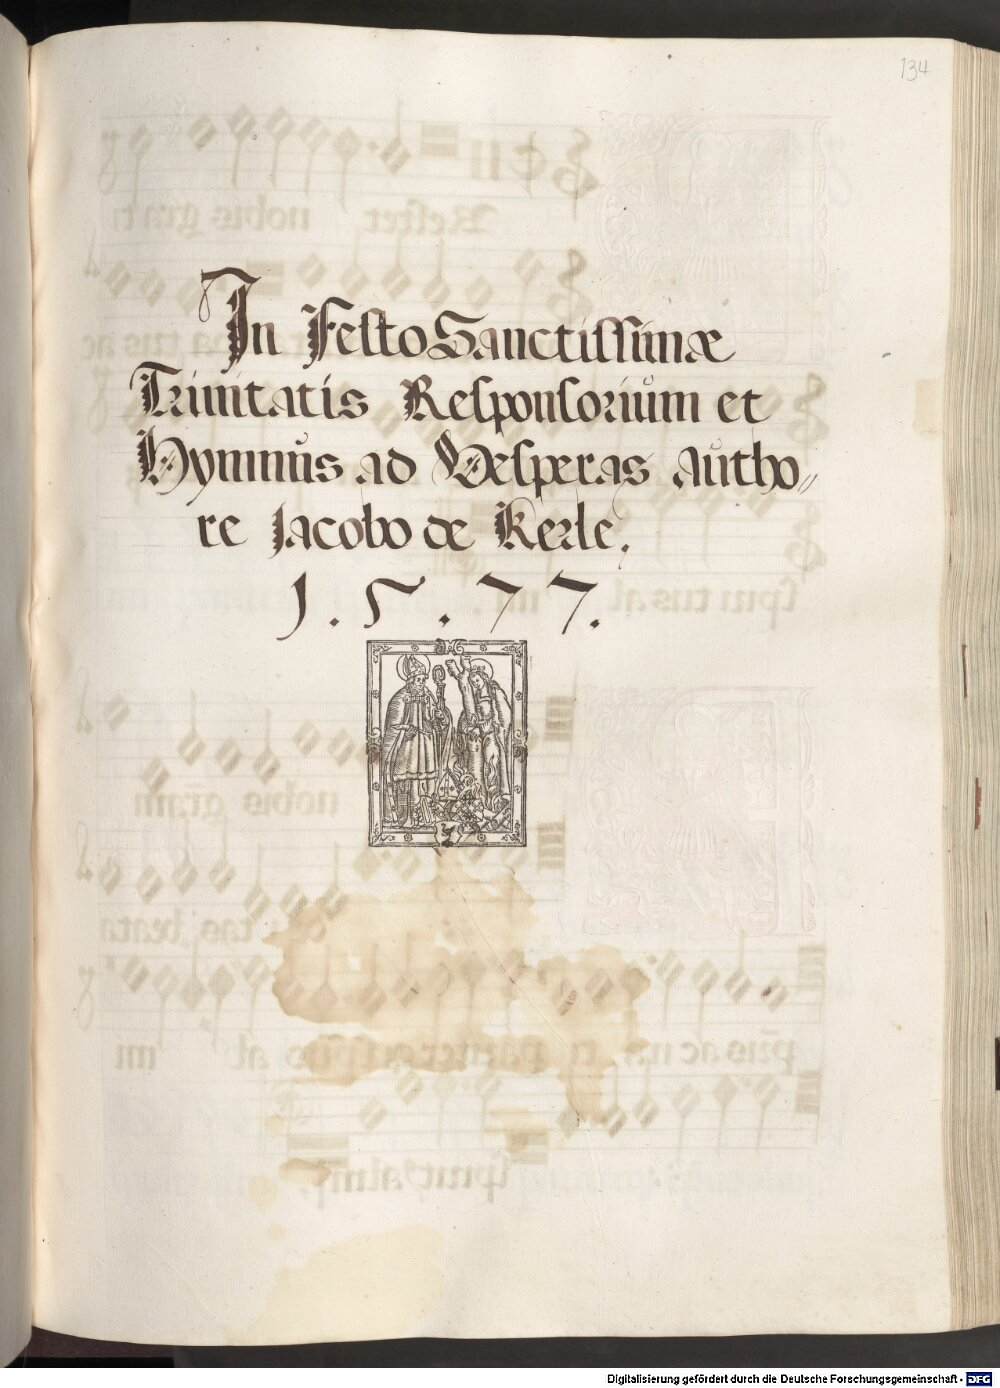 134
In Festo Sanctissimæ
Trinitatis Responsorium et
Hymnus ad Vesperas Autho⸗
re Jacobo de Kerle.
1.5.77.
Digitalisierung gefördert durch die Deutsche Forschungsgemeinschaft - DFG